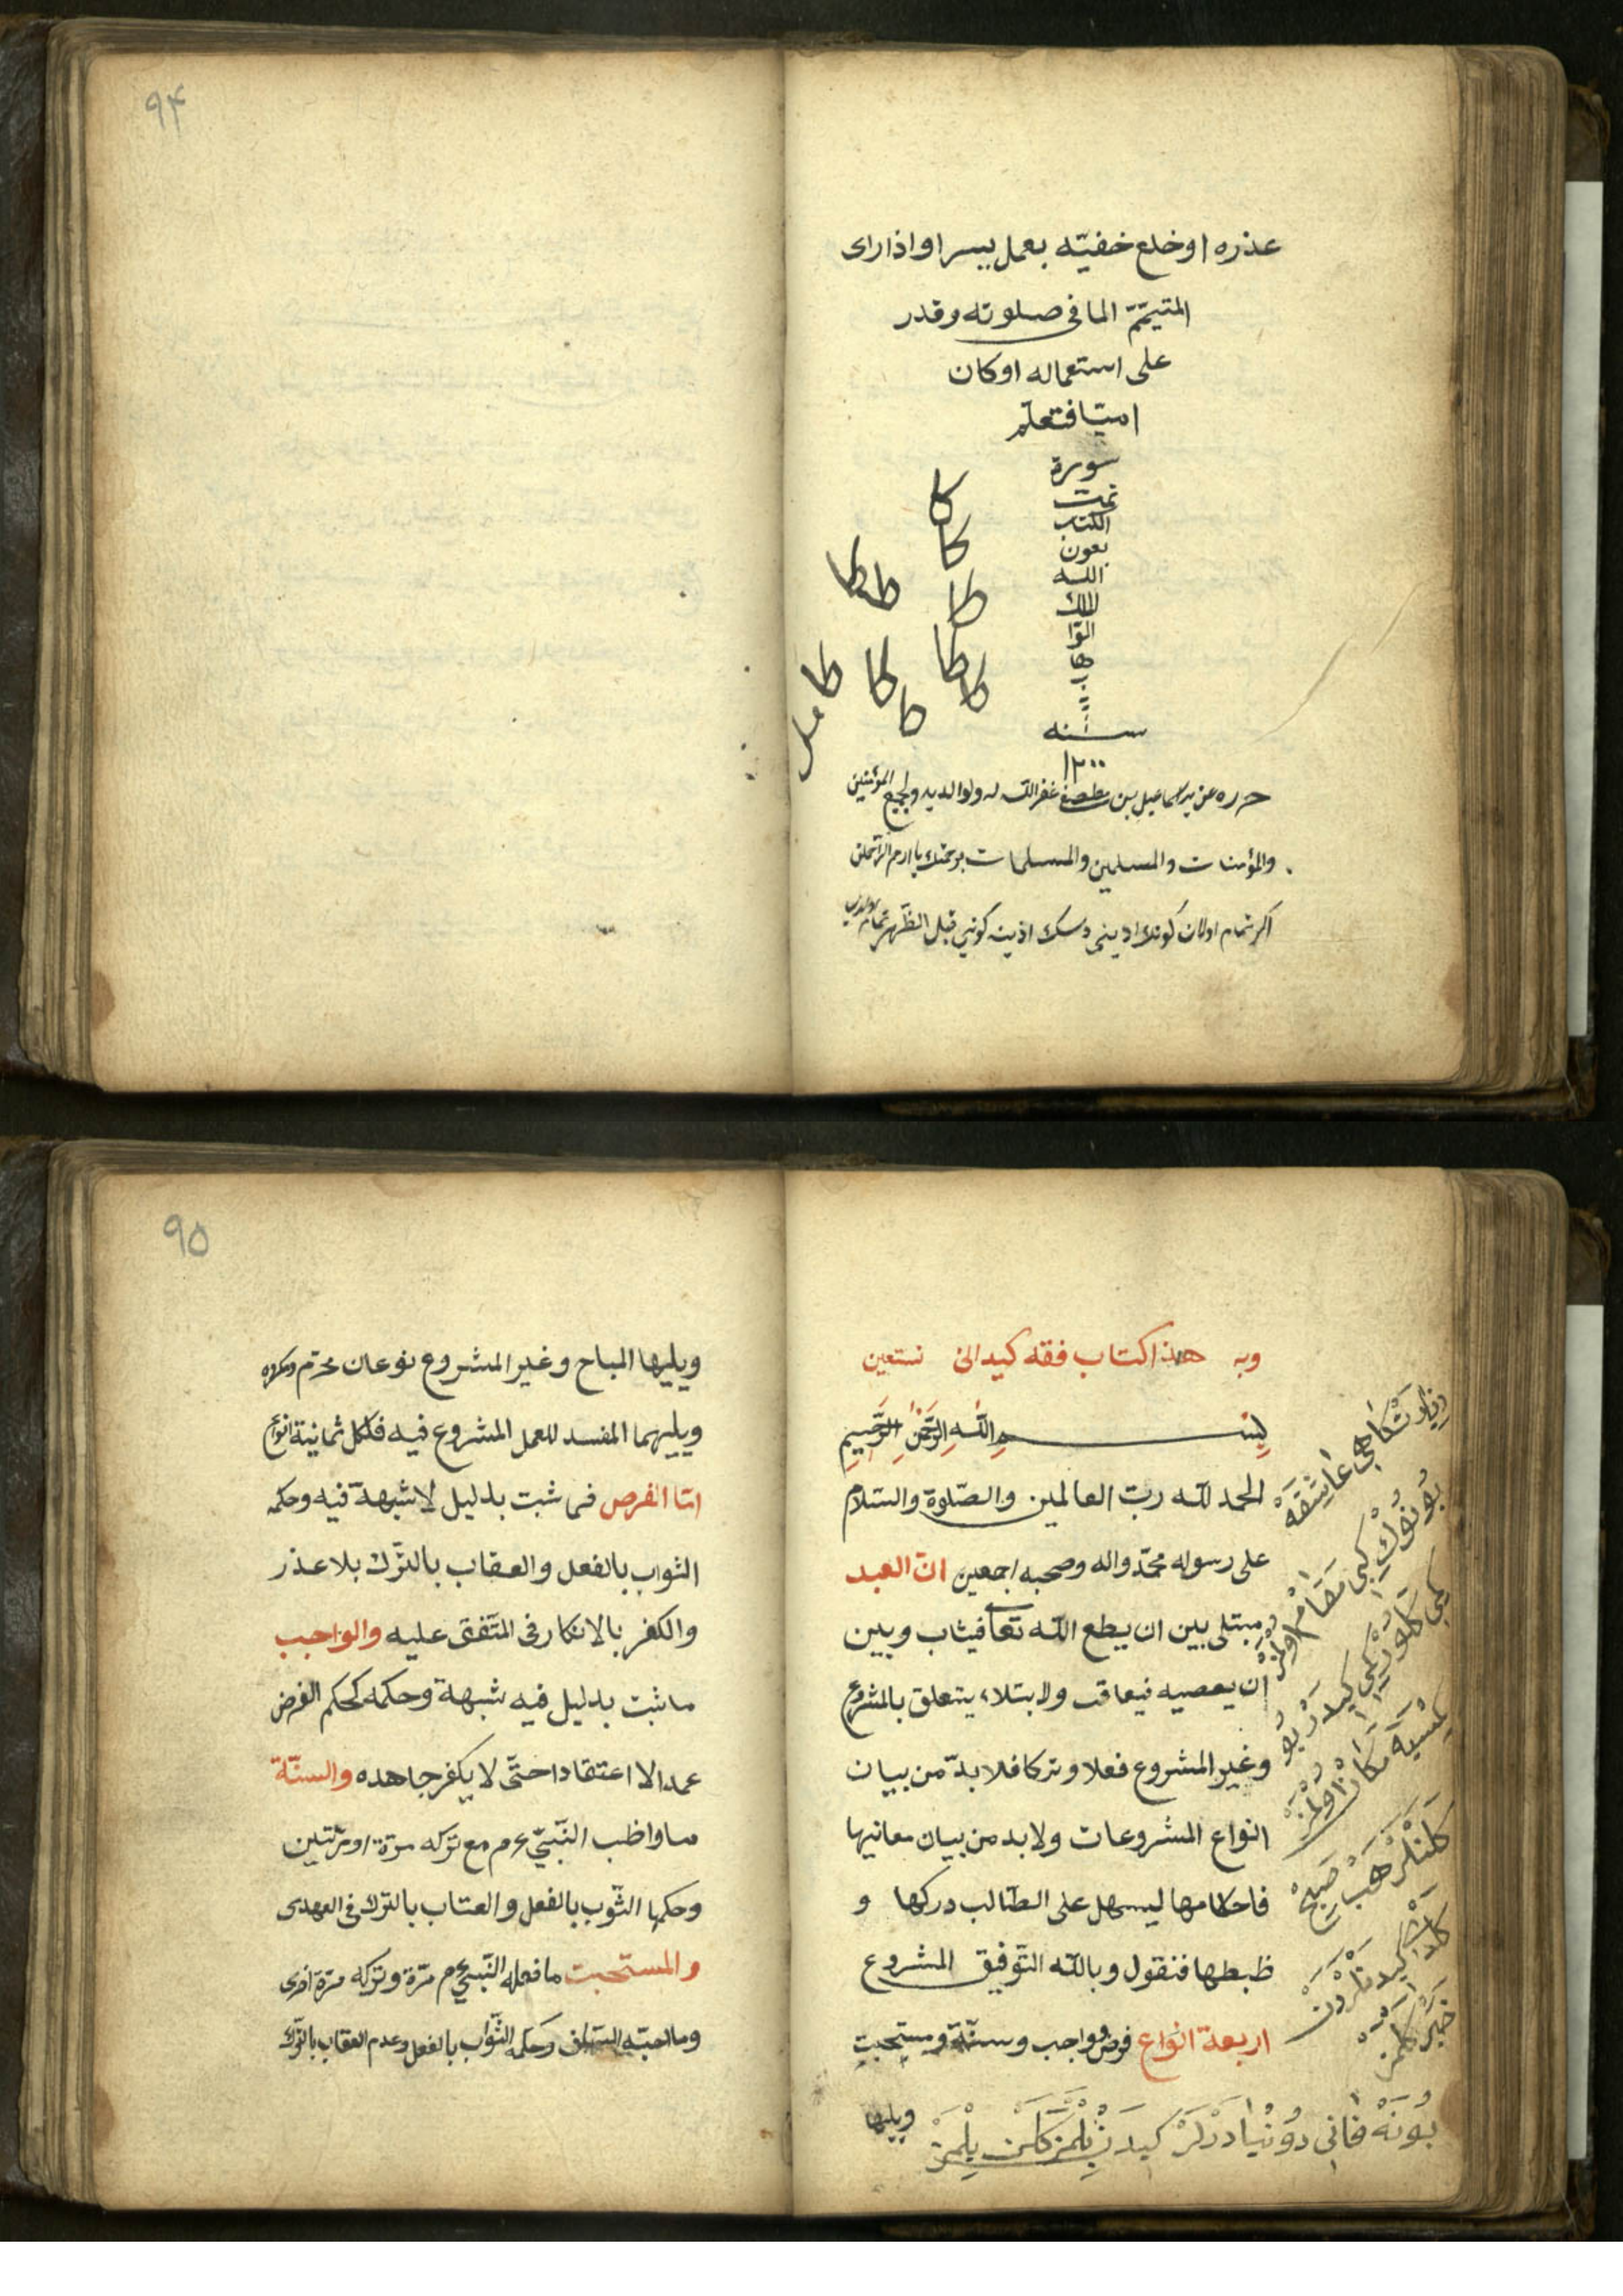 ٩٤
عذره او خلع خفيّه بعمل يسير او اذا رای
المتيمّم الما فی صلوته وقدر
علی استعماله او كان
اميّا فتعلّم
سورة
تمت
الكتب
بعون
الله
الملك
الوّا
هاب
سنه
١٢٠٠
حرره اسماعيل بن مصطفی غفر الله له ولوالديه ولجميع المؤمنين
والمؤمنات والمسلمين والمسلمات برحمتك يا ارحم الرّاحمين
اكر تمام اولان كونك اديني دسك اذينه كوني قبل الظّهر تمام
٩٥
وبه هذا كتاب فقه كيدانی نستعين
بِسْمِ اللّٰهِ الرَّحْمٰنِ الرَّحِيمِ
الحمد للّه ربّ العالمين والصّلوة والسّلام
علی رسوله محمّد واله وصحبه اجمعين انّ العبد
مبتلی بين ان يطع اللّه تعا فيثاب وبين
ان يعصيه فيعاقب ولابتلاء يتعلق بالمشروع
وغير المشروع فعلا وتركا فلا بدّ من بيان
انواع المشروعات ولا بد من بيان معانيها
فاحكامها ليسهل علی الطّالب دركها و
ظبطها فنقول وباللّه التّوفيق المشروع
اربعة انواع فرض وواجب وسنّة ومستحبت
ويليها
بُونَهْ فانی دُونْيَادَرْلَرْ كيدَنْ بِلْمَزْ كَلَنْ بِلْمَزْ
ويليها المباح وغير المشروع نوعان محرّم ومكروه
ويليهما المفسد للعمل المشروع فيه فلكل ثمانية انواع
امّا الفرض فمی ثبت بدليل لا شبهة فيه وحكمه
الثواب بالفعل والعقاب بالتّرك بلا عذر
والكفر بالانكار فی المتّفق عليه والواجب
ما ثبت بدليل فيه شبهة وحكمه كحكم الفرض
عملا لا اعتقادا حتّی لا يكفر جاهده والسنّة
ما واظب النّبیّ ع م مع تركه مرّة او مرّتين
وحكمها الثّوب بالفعل والعتاب بالترك فی العهدی
والمستحبت ما فعله النّبیّ ع م مرّة وتركه مرّة اخری
وما احبّه السّلف وحكمه الثّواب بالفعل وعدم العقاب بالتّرك